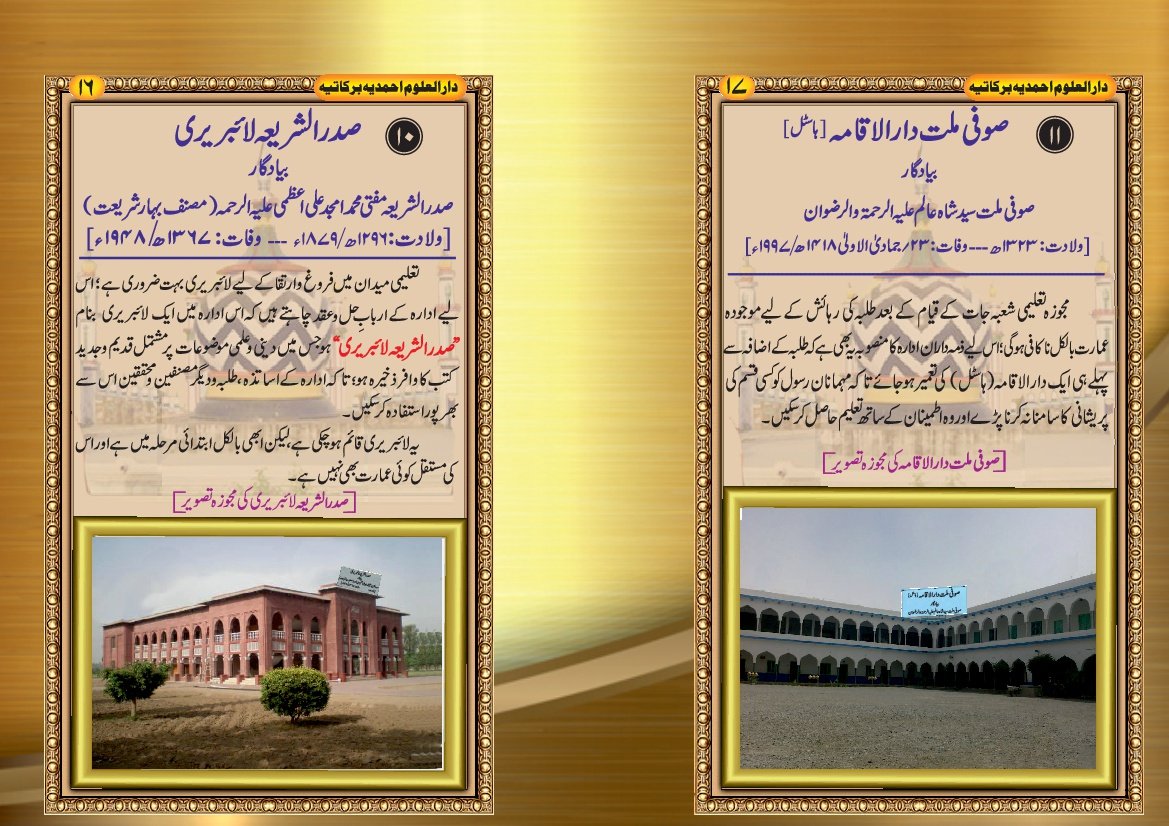 ۱۶
دارالعلوم احمدیہ برکاتیہ
۱۰
صدرالشریعہ لائبریری
بیادگار
صدرالشریعہ مفتی محمد امجد علی اعظمی علیہ الرحمہ (مصنف بہار شریعت)
[ولادت: ۱۲۹۶ھ/۱۸۷۹ء --- وفات: ۱۳۶۷ھ/۱۹۴۸ء]
تعلیمی میدان میں فروغ وارتقا کے لیے لائبریری بہت ضروری ہے؛ اس
لیے ادارہ کے ارباب حل وعقد چاہتے ہیں کہ اس ادارہ میں ایک لائبریری بنام
”صدرالشریعہ لائبریری“ ہو جس میں دینی وعلمی موضوعات پر مشتمل قدیم وجدید
کتب کا وافر ذخیرہ ہو؛ تاکہ ادارہ کے اساتذہ، طلبہ ودیگر مصنفین ومحققین اس سے
بھرپور استفادہ کر سکیں۔
یہ لائبریری قائم ہو چکی ہے، لیکن ابھی بالکل ابتدائی مرحلہ میں ہے اور اس
کی مستقل کوئی عمارت بھی نہیں ہے۔
[صدرالشریعہ لائبریری کی مجوزہ تصویر]
۱۷
دارالعلوم احمدیہ برکاتیہ
۱۱
صوفی ملت دارالاقامہ [ہاسٹل]
بیادگار
صوفی ملت سید شاہ عالم علیہ الرحمۃ والرضوان
[ولادت: ۱۳۲۳ھ --- وفات: ۲۳/ جمادی الاولیٰ ۱۴۱۸ھ/۱۹۹۷ء]
مجوزہ تعلیمی شعبہ جات کے قیام کے بعد طلبہ کی رہائش کے لیے موجودہ
عمارت بالکل ناکافی ہوگی؛ اس لیے ذمہ داران ادارہ کا منصوبہ یہ بھی ہے کہ طلبہ کے اضافہ سے
پہلے ہی ایک دارالاقامہ (ہاسٹل) کی تعمیر ہو جائے تاکہ مہمانان رسول کو کسی قسم کی
پریشانی کا سامنا نہ کرنا پڑے اور وہ اطمینان کے ساتھ تعلیم حاصل کر سکیں۔
[صوفی ملت دارالاقامہ کی مجوزہ تصویر]
صوفی ملت دارالاقامہ [ہاسٹل]
بیادگار